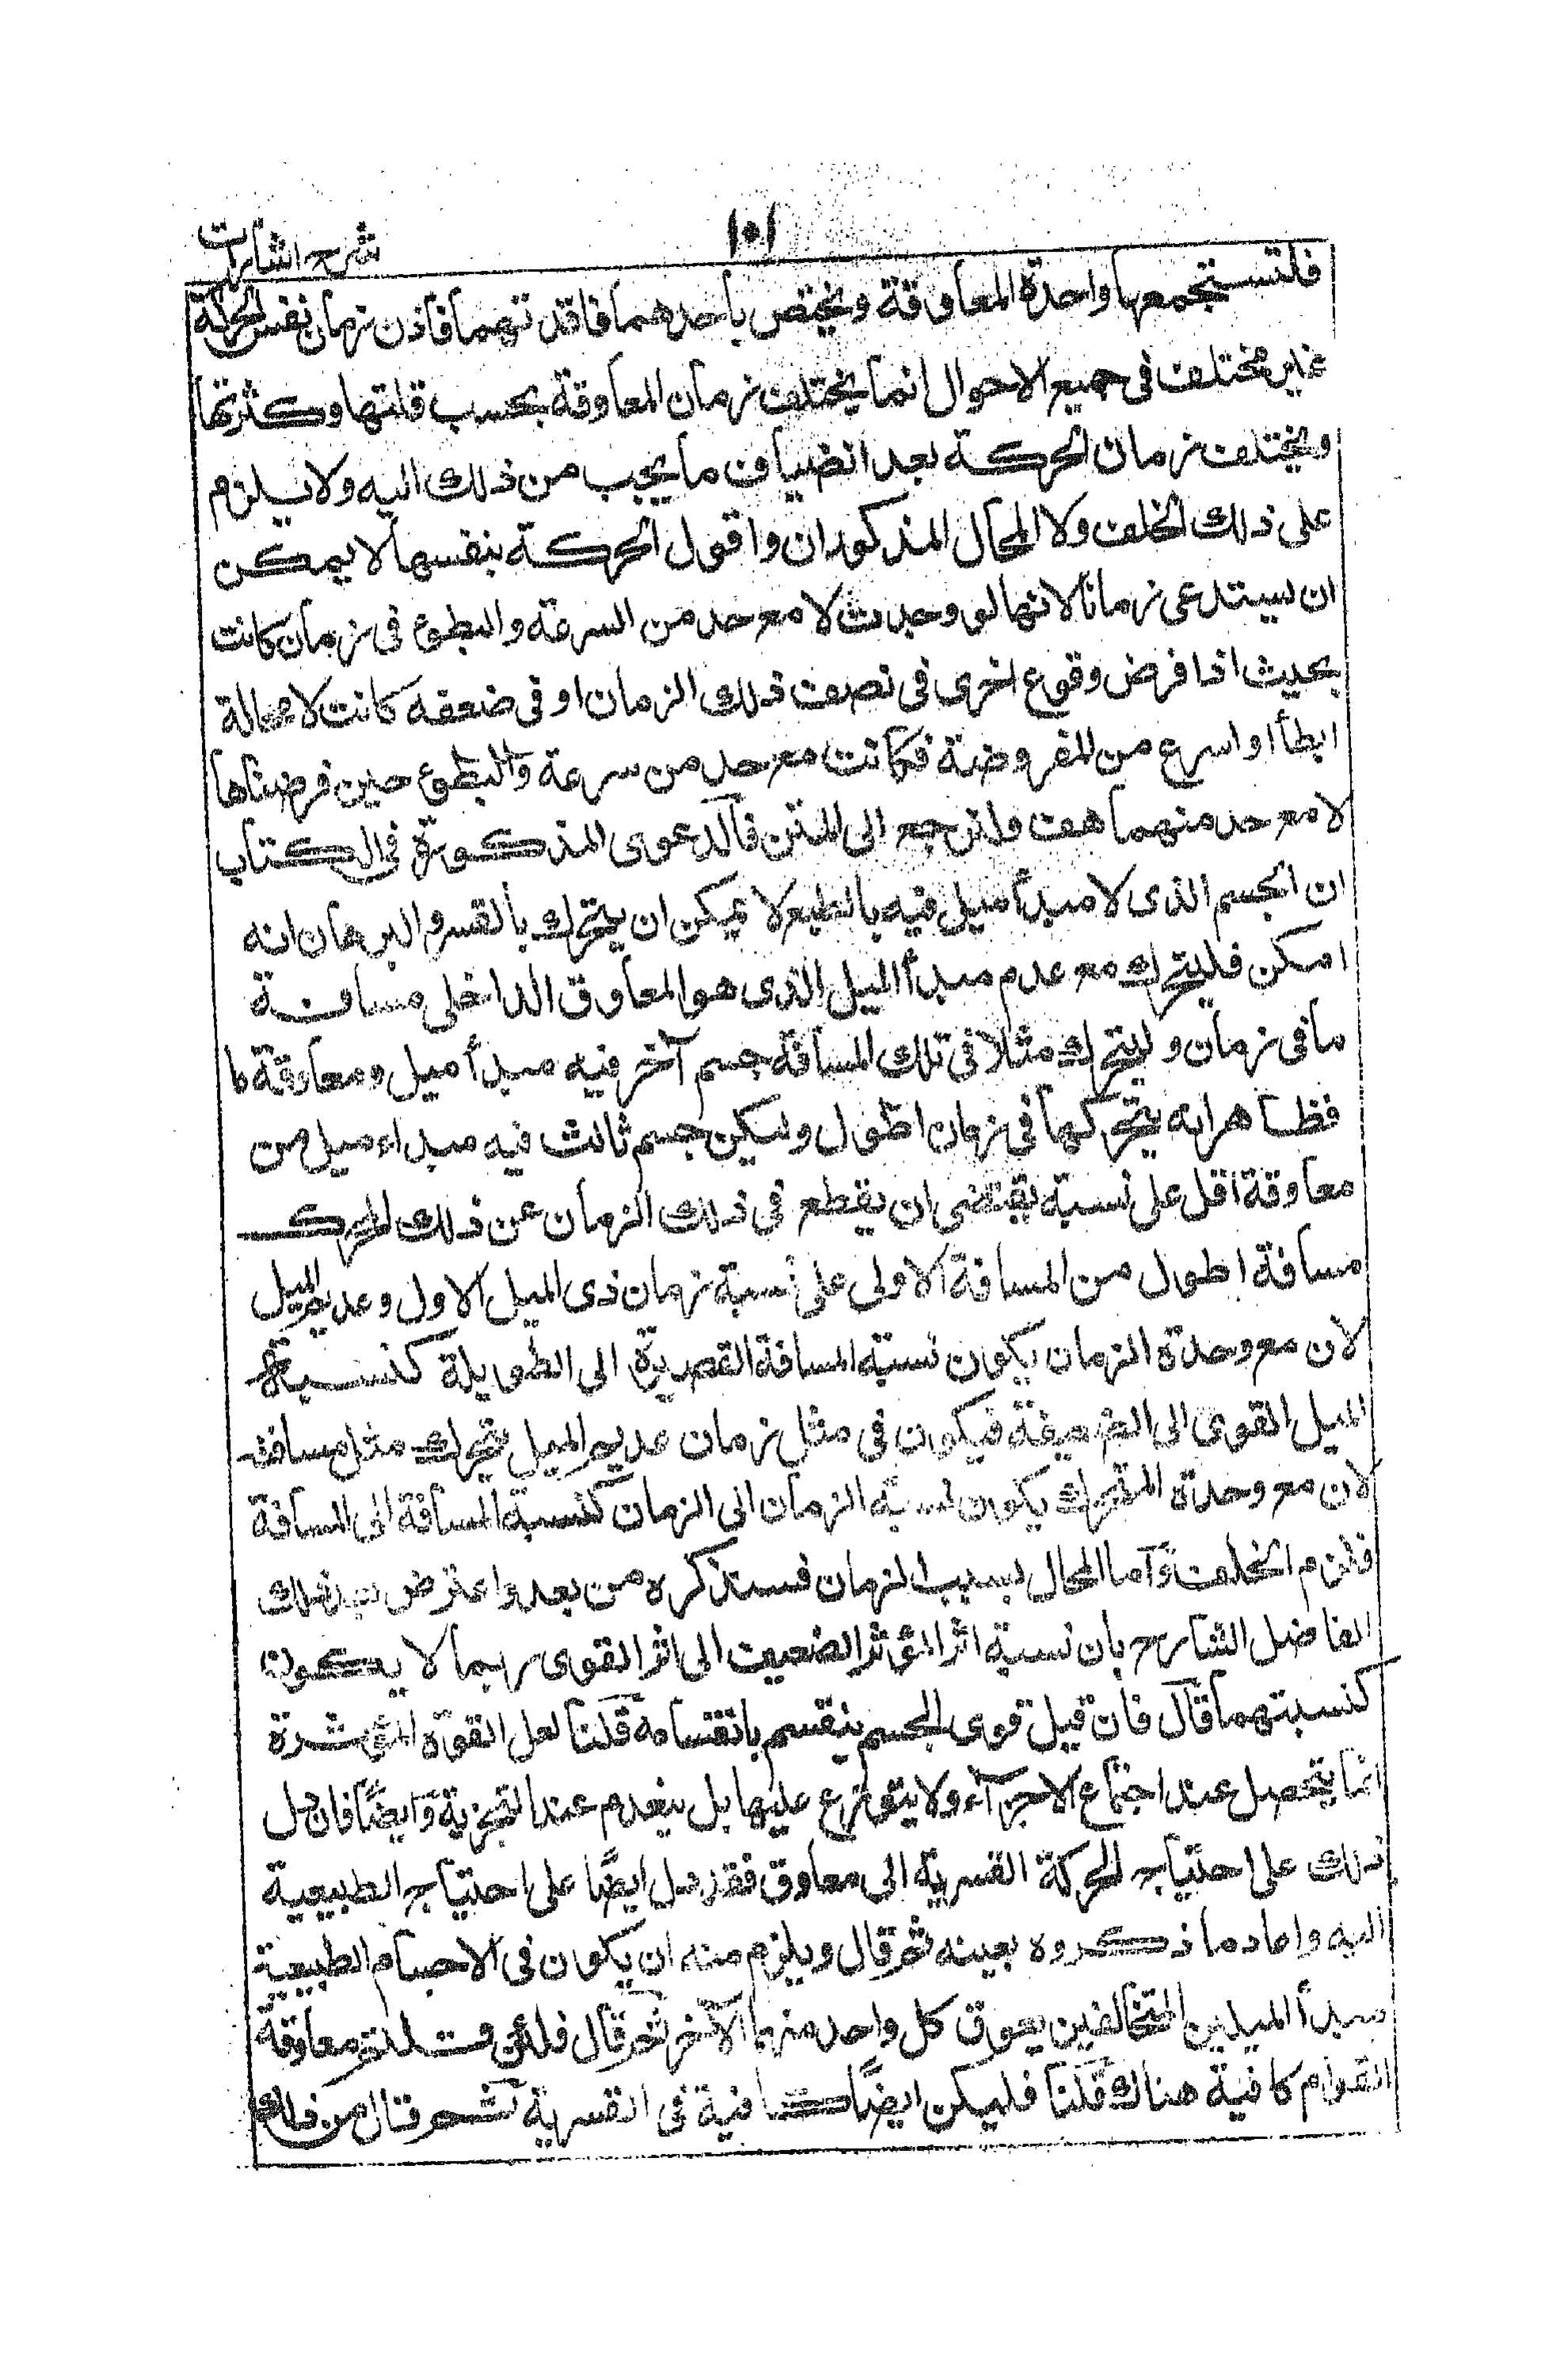 ١٥١
شرح اشارات
فلتستجمعها واحدة المعاوقة ويختص بأحدهما فاقدتهما فاذن زمان نفس الحركة
غير مختلف فى جميع الاحوال انما يختلف زمان المعاوقة بحسب قلتها وكثرتها
ويختلف زمان الحركة بعد انضياف ما يجب من ذلك اليه ولا يلزم
على ذلك الخلف ولا المحال المذكوران واقول الحركة بنفسها لا يمكن
ان يستدعى زمانا لانها لو وجدت لا مع حد من السرعة والبطوء فى زمان كانت
بحيث اذا فرض وقوع اخرى فى نصف ذلك الزمان او فى ضعفه كانت لا محالة
ابطأ او اسرع من المفروضة فكانت مع حد من سرعة والبطوء حين فرضناها
لا مع حد منهما هف ولنرجع الى المتن فالدعوى المذكورة فى الكتاب
ان الجسم الذى لا مبدأ ميل فيه بالطبع لا يمكن ان يتحرك بالقسر والبرهان انه
امكن فليتحرك مع عدم مبدأ الميل الذى هو المعاوق الداخلى مسافة
ما فى زمان وليتحرك مثلا فى تلك المسافة جسم آخر فيه مبدأ ميل ومعاوقة ما
فظاهر انه يتحركها فى زمان اطول وليكن جسم ثالث فيه مبداء ميل من
معاوقة اقل على نسبة يقتضى ان يقطع فى ذلك الزمان عن ذلك المحرك
مسافة اطول من المسافة الاولى على نسبة زمان ذى الميل الاول وعديم الميل
لان مع وحدة الزمان يكون نسبة المسافة القصيرة الى الطويلة كنسبة
الميل القوى الى الضعيفة فيكون فى مثل زمان عديم الميل يتحرك مثل مسافته
لان مع وحدة المتحرك يكون نسبة الزمان الى الزمان كنسبة المسافة الى المسافة
فلزم الخلف وآما المحال بسبب الزمان فستذكره من بعد واعترض بعد ذلك
الفاضل الشارح بان نسبة اثر المؤثر الضعيف الى اثر القوى ربما لا يكون
كنسبتهما قال فان قيل قوى الجسم ينقسم بانقسامه قلنا لعل القوة المؤثرة
انما يتحصل عند اجتماع الاجزآء ولا يتوزع عليها بل ينعدم عند التجزية وآيضًا فان دل
ذلك على احتياج الحركة القسرية الى معاوق فقد دل ايضًا على احتياج الطبيعية
اليه واعاد ما ذكروه بعينه ثم قال ويلزم منه ان يكون فى الاجسام الطبيعية
مبدأ الميلين المتخالفين يعوق كل واحد منهما الآخر ثم قال فلئن قلتم معاوقة
القوام كافية هناك قلنا فليكن ايضًا كافية فى القسرية ثم قال من ذلك